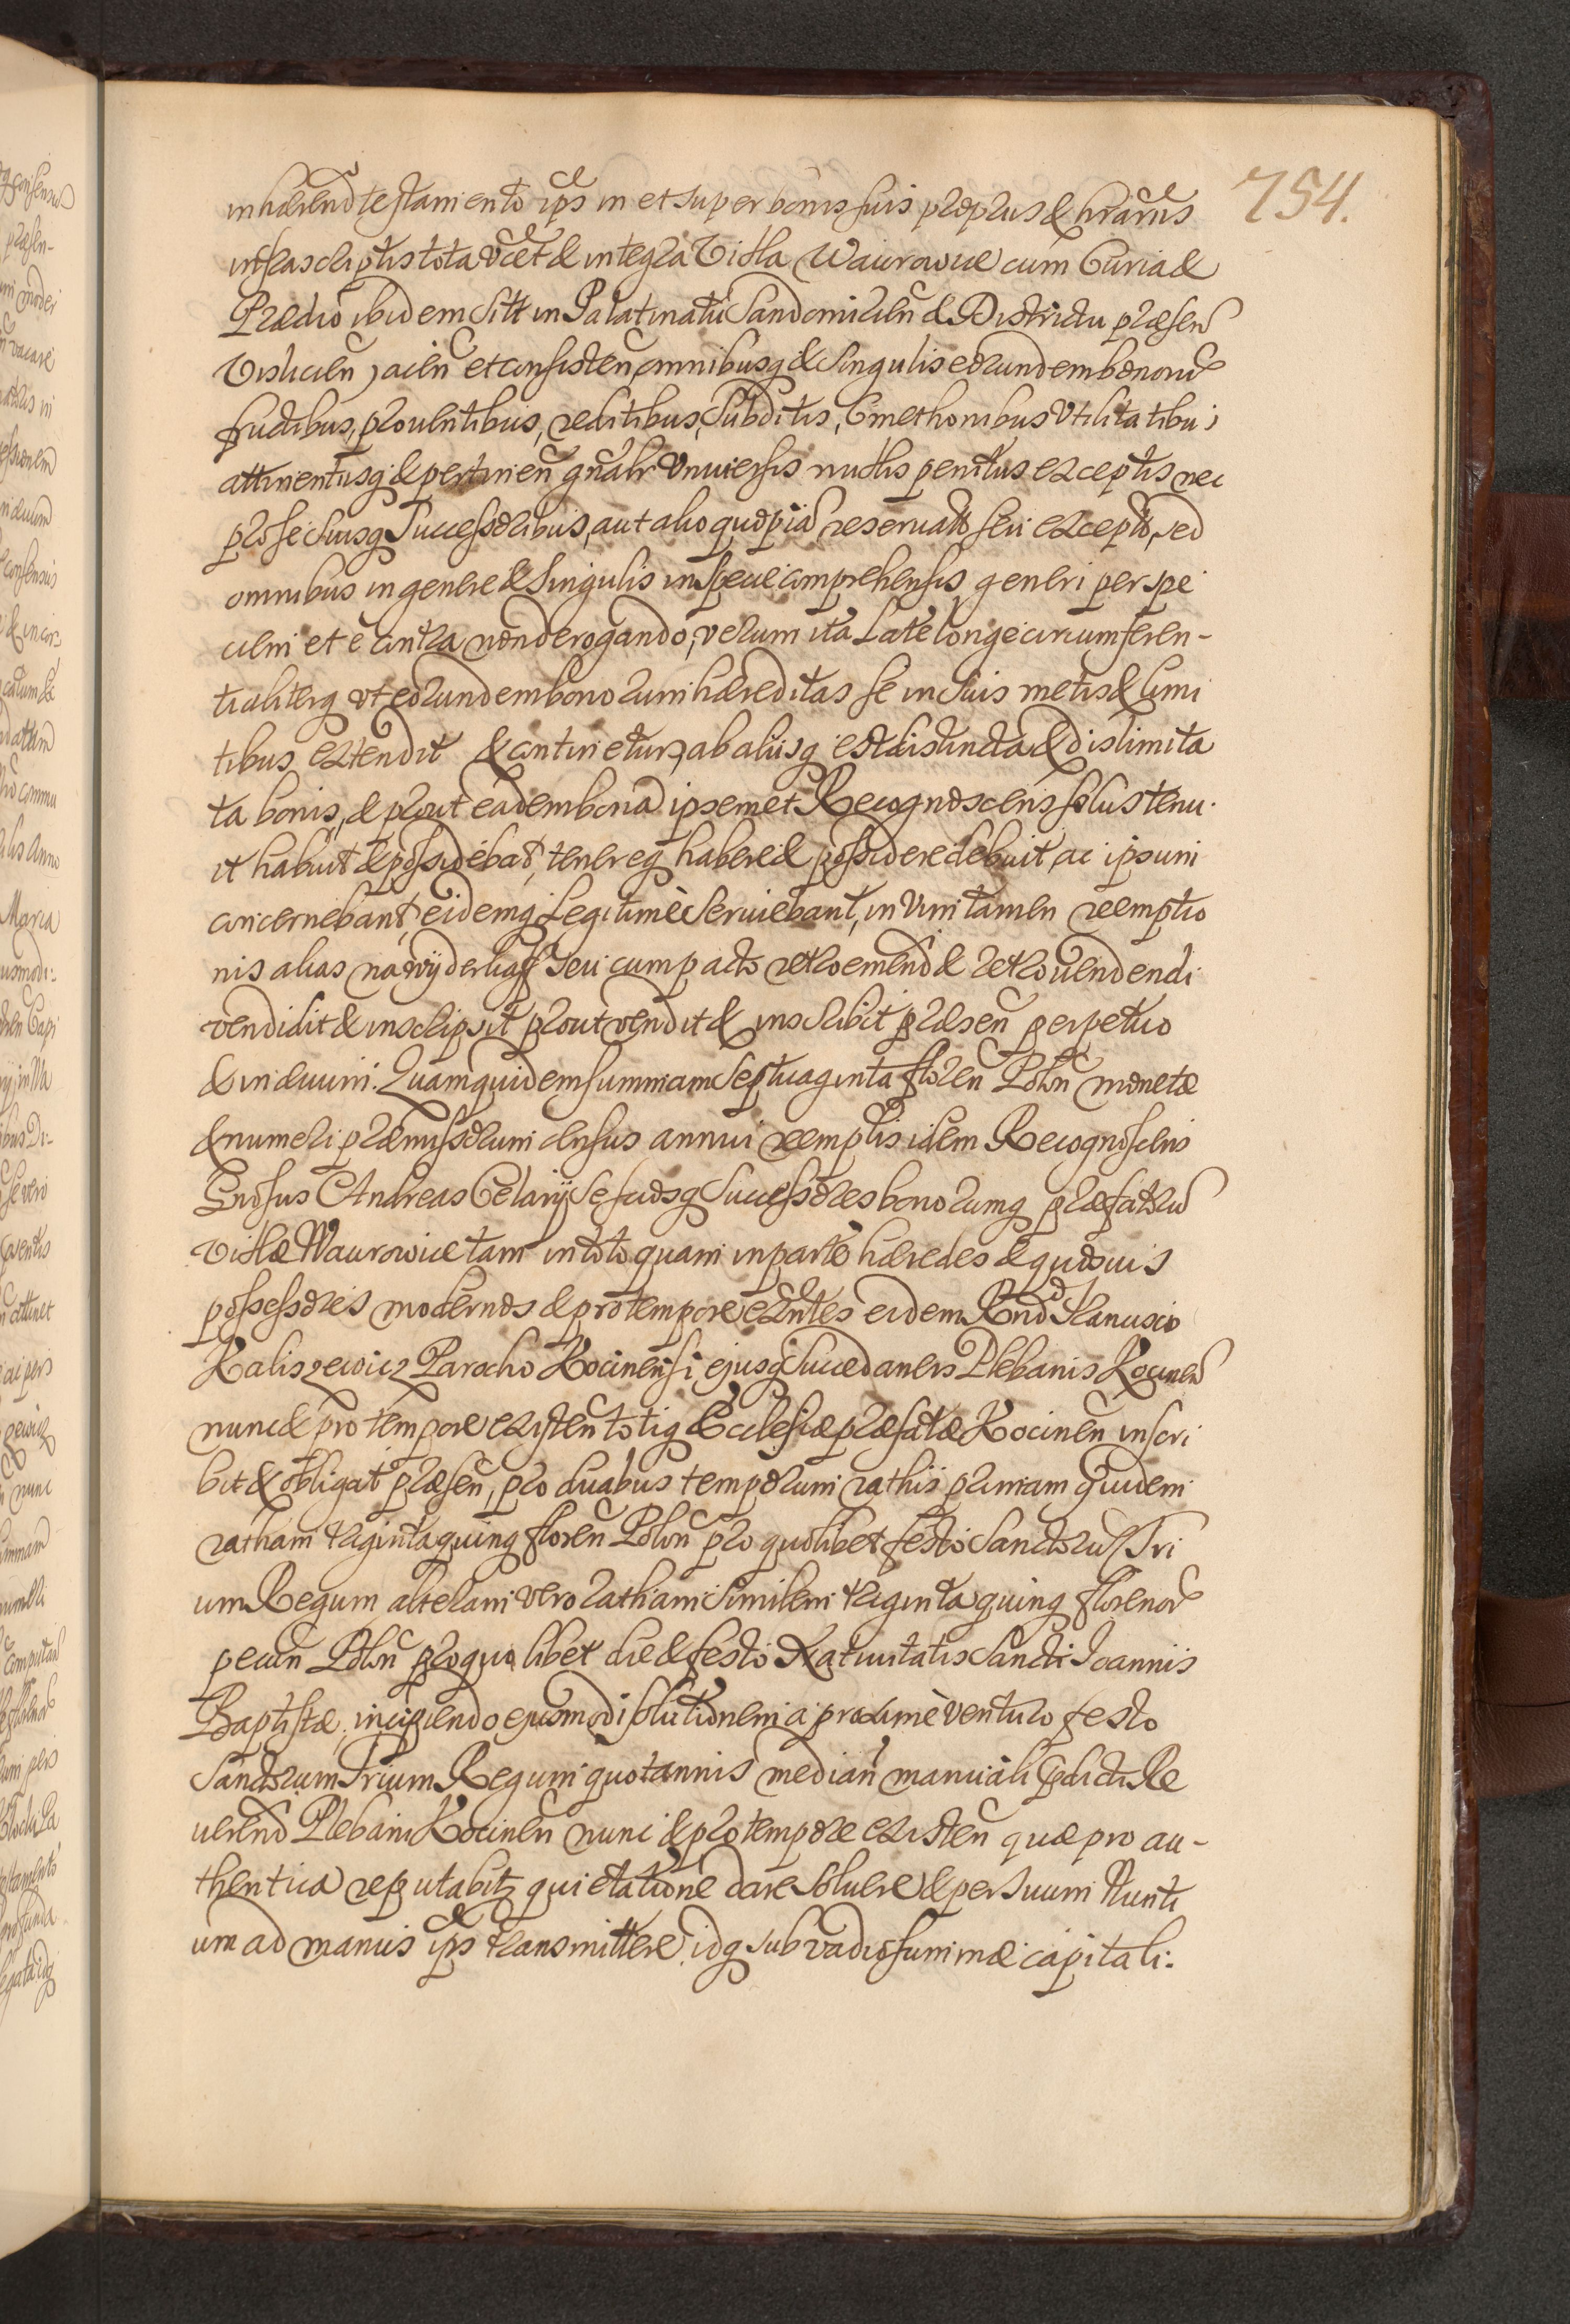 754.
inhærend testamento ips in et super bonis suis proprus & hrārus
infrascriptis tota vcet & integra Villa Waurowice cum Curia &
Prædio ibidem Sitt in Palatinatu Sandomirien̄ & Districtu præsen
Visliceń jacen̄ et consisten̄ omnibusq & Singulis eorundem bonor
fructibus, prouentibus, reditibus, Subditis, Cmethonibus Vtilitatibus
attinentusq & pertinen̄ gnalr Vniuersis nullis penitus exceptis nec
pro se suisq Successoribus, aut alio quopia reseruato seu excepto, sed
omnibus in genere & Singulis in specie comprehensis generi per spe
ciem et e contra non derogando, verum ita Late longe circumferen-
tialiterq vt eorundem bonorum hæreditas se in Suis metis & Limi
tibus extendit & continetur, ab aliisq est distincta & dislimita
ta bonis, & prout eadem bona ipsemet Recognoscens solus tenu
it habuit & possidebat, tenereq habere & possidere debuit, ac ipsum
concernebant, eidemq Legitimè Seruiebant, in Vim tamen reemptio
nis alias na wyderkaff Seu cum pacto retroemend & retrouendendi
vendidit & inscripsit prout vendit & inscribit præsen̄ perpetuo
& in æuum. Quam quidem summam Septuaginta floren̄ Polon̄ monetæ
& numeri præmissorum census annui reemptis idem Recognoscens
Gnosus Andreas Celarÿ Se suosq Successores bonorumq præfator
Villæ Waurowice tam in toto quam in parte hæredes & quosuis
possessores modernos & pro tempore exn̄tes eidem Rnd Stanislao
Kaliszewicz Parocho Kocinensi, ejusq Succedaneis Plebanis Kocinen
nunc & pro tempore existen̄ totiq Ecclesiæ præfatæ Kocinen̄ inscri
bit & obligat præsen̄, pro duabus temporum rathis primam quidem
ratham trigintaquinq floren̄ Polon̄ pro quolibet festo Sanctoru Tri
um Regum alteram vero ratham Similem triginta quinq florenor
pecun̄ Polon̄ pro quolibet die & festo Natiuitatis Sancti Joannis
Baptistæ, incipiendo ejusmodi solutionem a proximè venturo festo
Sanctorum Trium Regum quotannis median̄ manuali pdicti Re
uerend Plebani Kocinen̄ nunc & pro tempore existen̄ quæ pro au-
thentica reputabitr quietatione dare Soluere & per Suum Nunti
um ad manus ips transmittere idq sub vadio summæ capitali.